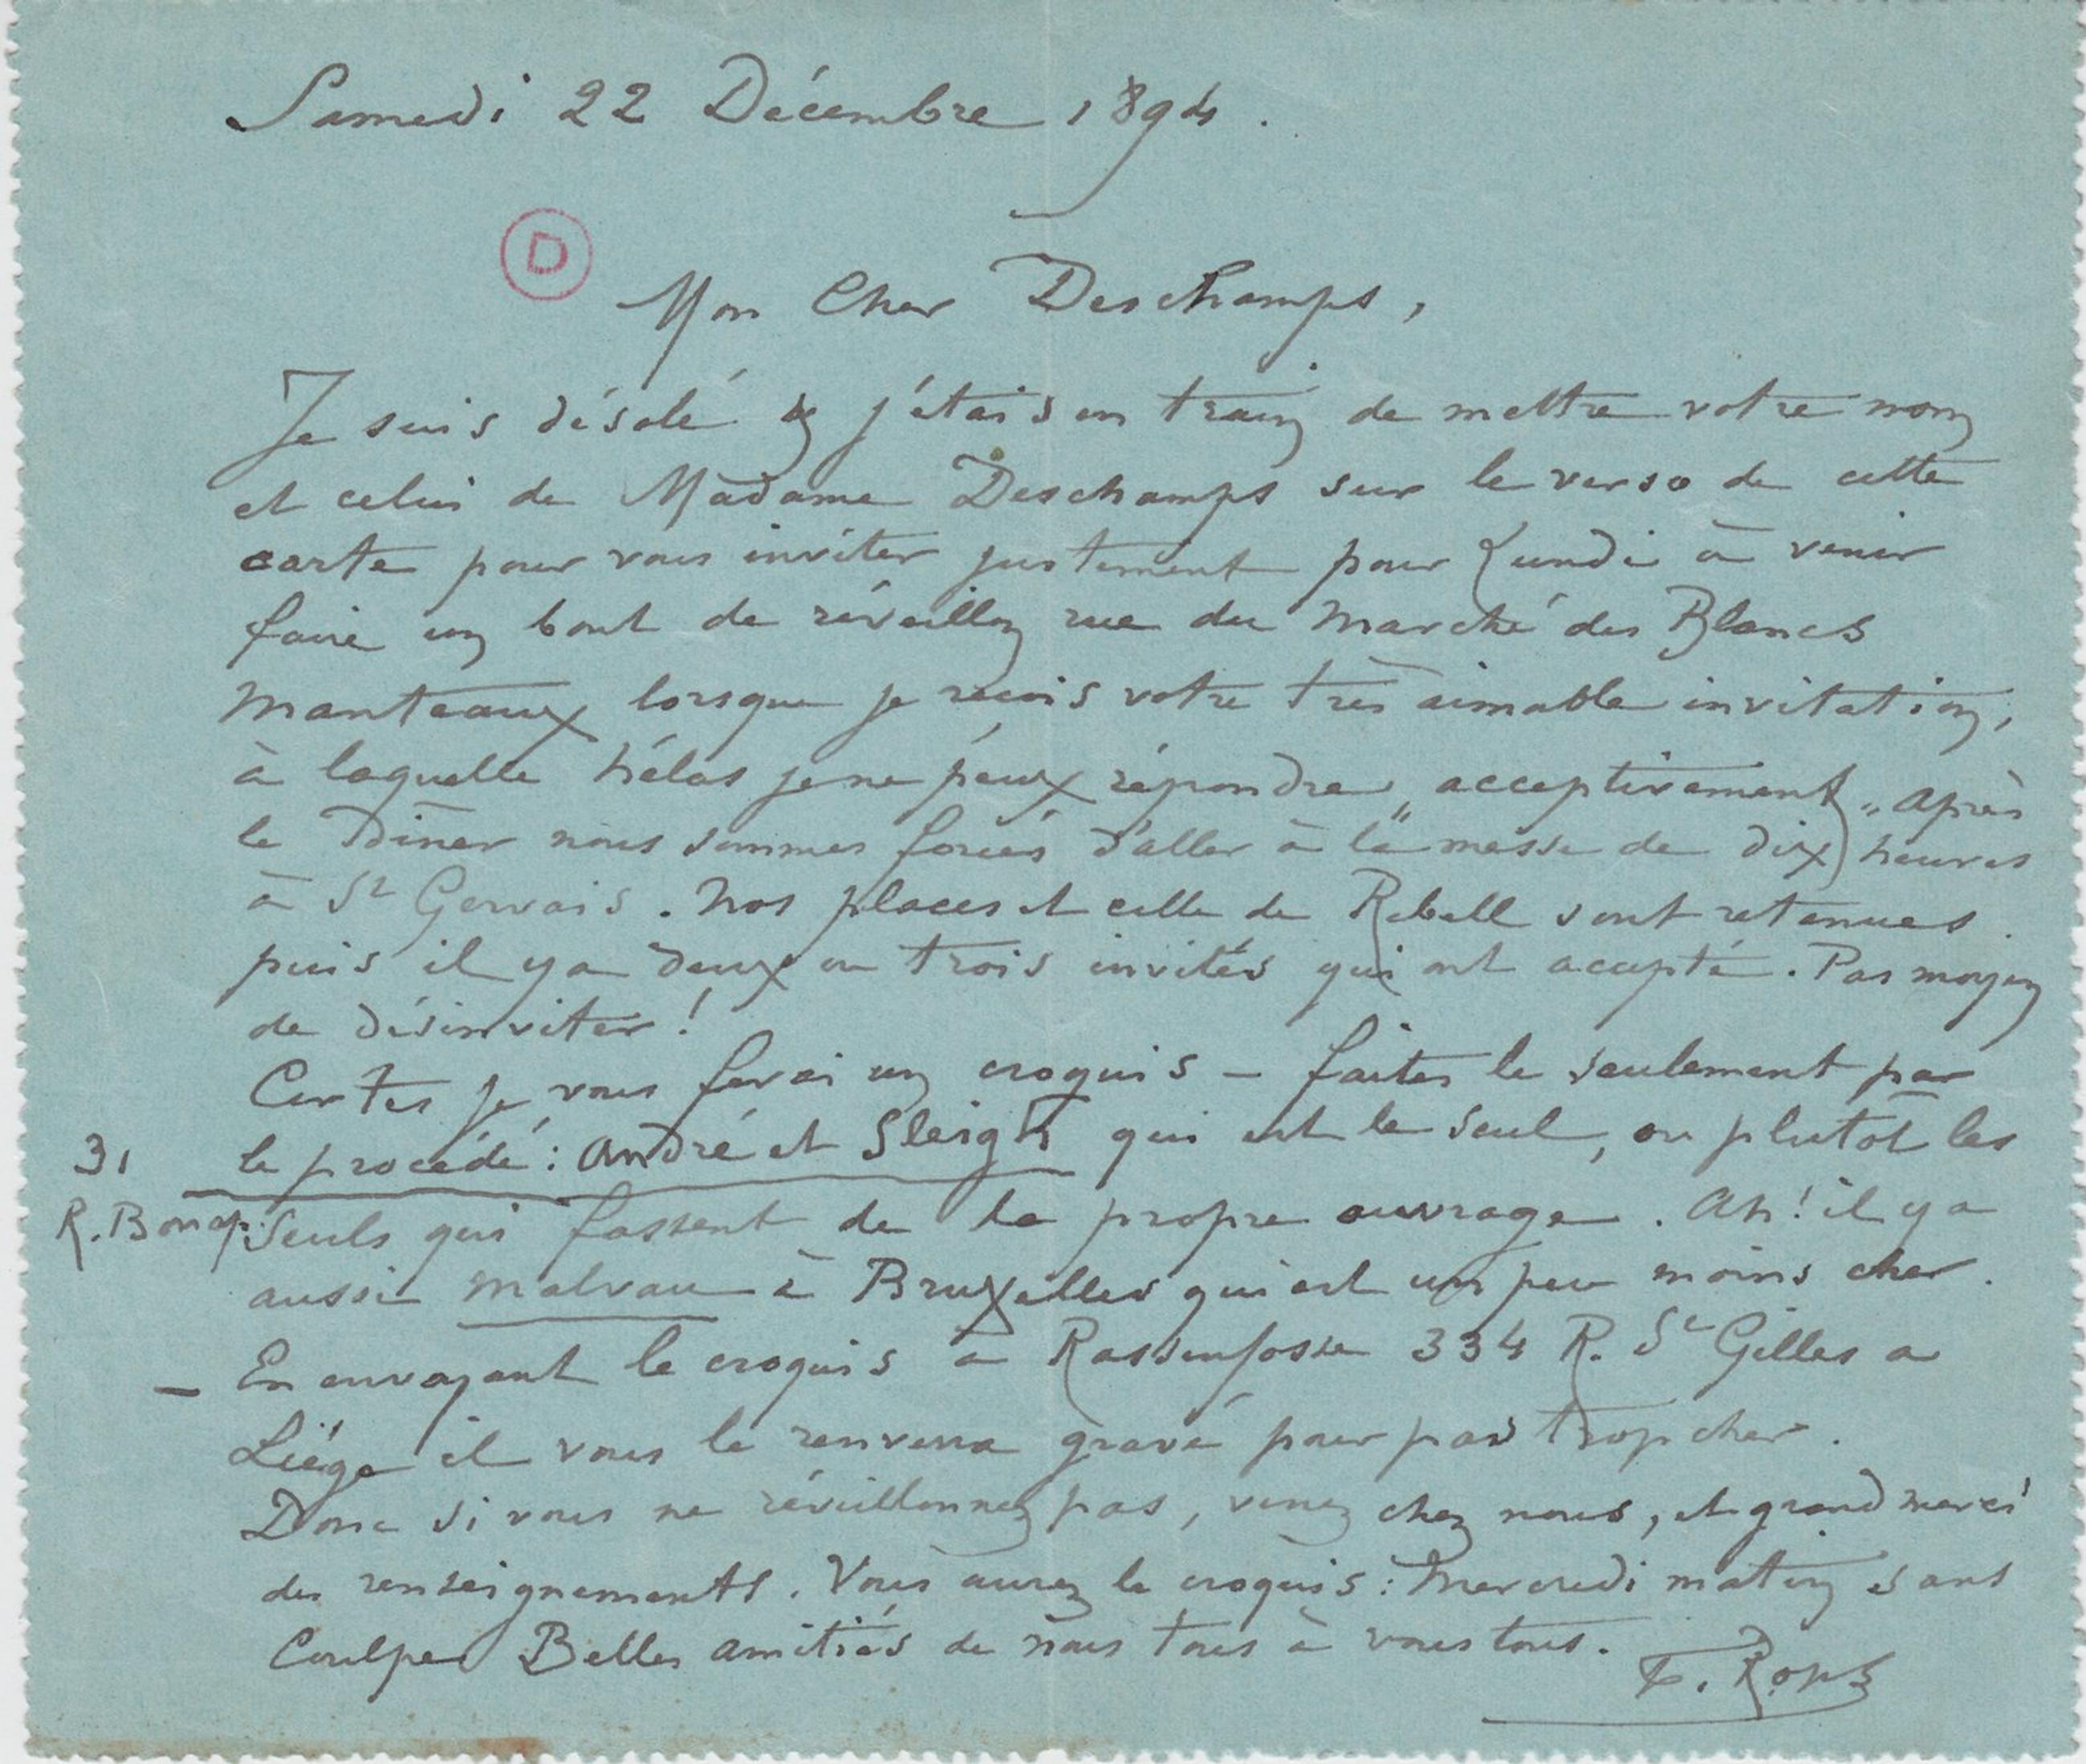 Samedi 22 Décembre 1894.
D
Mon Cher Deschamps,
Je suis désolé & j'étais en train de mettre votre nom
et celui de Madame Deschamps sur le verso de cette
carte pour vous inviter justement pour Lundi à venir
faire un bout de réveillon rue du Marché des Blancs
Manteaux lorsque je reçois votre très aimable invitation,
à laquelle hélas je ne peux répondre „acceptivement„ Après
le Dîner nous sommes forcés d'aller à la "messe de dix heures
à St Gervais. Nos places et celle de Rebell sont retenues.
puis il y a deux ou trois invités qui ont accepté. Pas moyen
de désinviter!
Certes je vous ferai un croquis – faites le seulement par
le procédé: André et Sleigh qui est le seul, ou plutôt les
31
R. Bonap: seuls qui fassent de la propre ouvrage. Ah! il y a
aussi Malvau à Bruxelles qui est un peu moins cher.
– En envoyant le croquis a Rassenfosse 334 R. St Gilles a
Liége il vous le renverra gravé pour pas trop cher.
Donc si vous ne réveillonnez pas, venez chez nous, et grand merci
des renseignements. Vous aurez le croquis: Mercredi matin sans
Coulpe Belles amitiés de nous tous à vous tous.
F. Rops